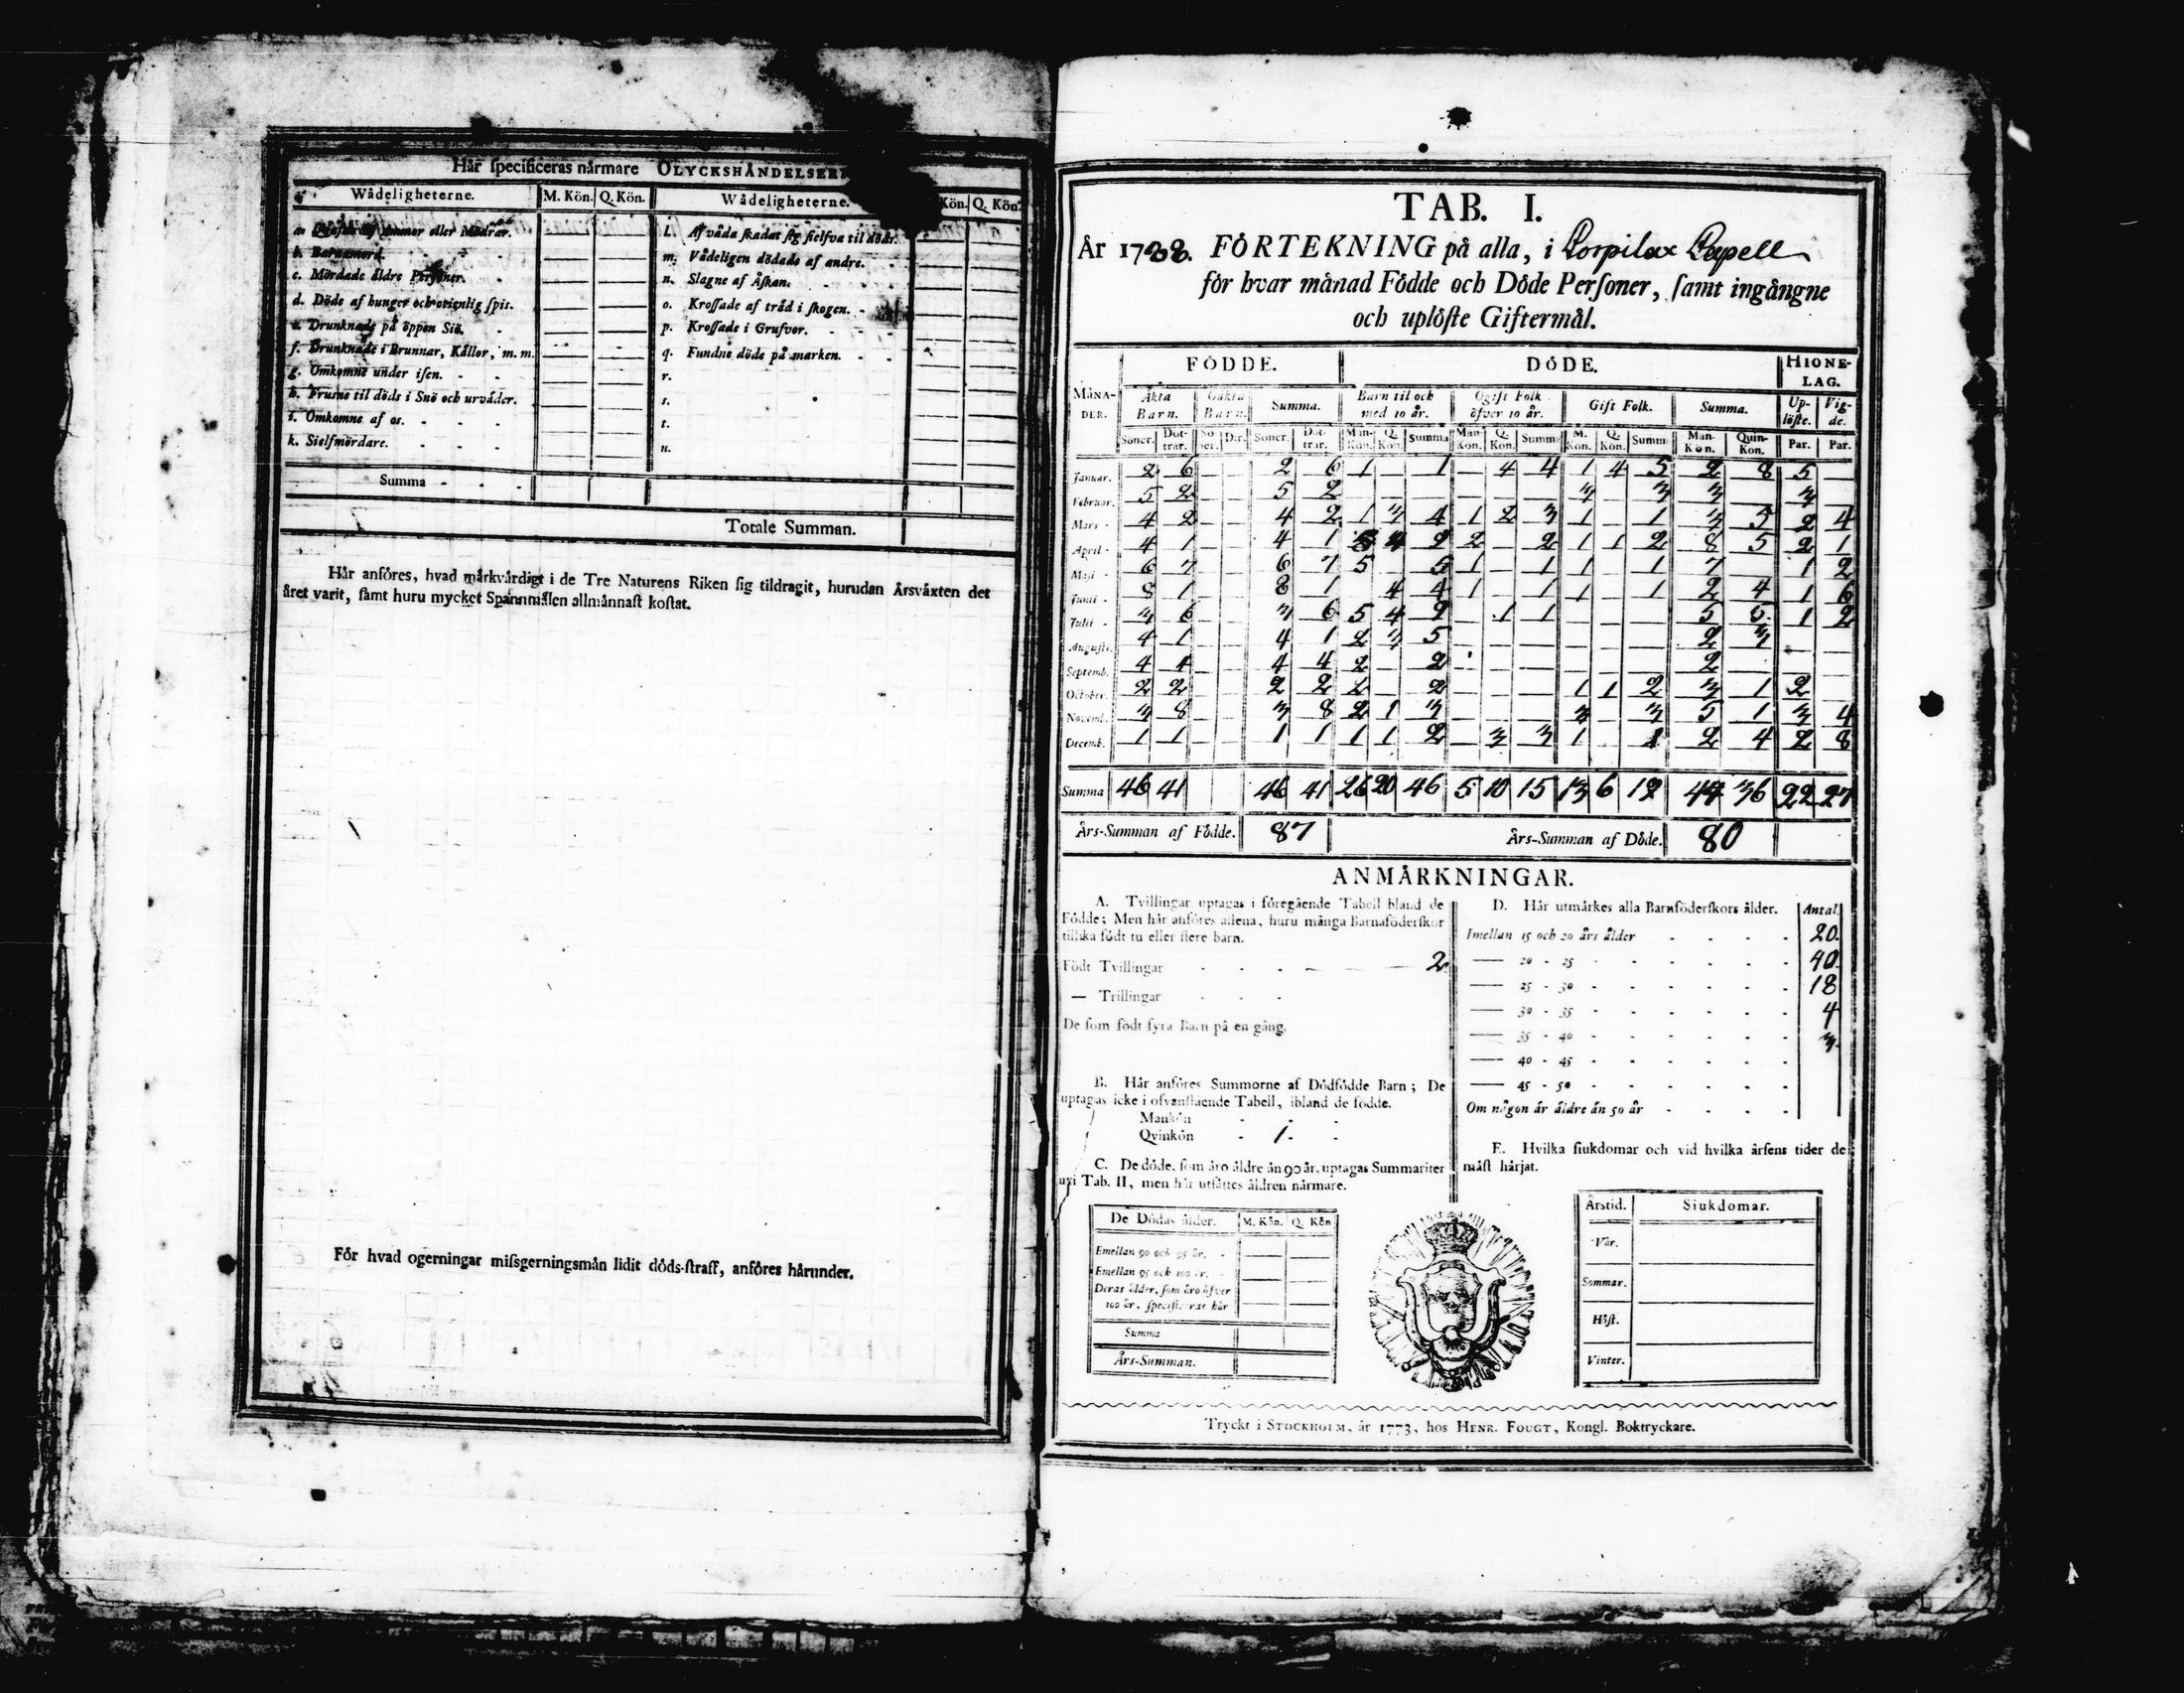 Hår ſpecificeras nårmare OLYCKSHÅNDELSER
Wådeligheterne. M. Kön. Q. Kön. Wådeligheterne. Kön. Q. Kön.
eller Mödrar. l. Af våda ſkadat ſig ſielfva til döds.
b. Barnamord. m. Vådeligen dödade af andre.
c. Mördade äldre Perſoner. n. Slagne af Åſkan.
d. Döde af hunger och otienlig ſpis. o. Kroſſade af tråd i ſkogen.
e. Drunknade på öppen Siö. p. Kroſſade i Grufvor.
f. Drunknade i Brunnar, Kållor, m. m. q. Fundne döde på marken.
g. Omkomne under iſen. r.
h. Fruſne til döds i Snö och urväder. s.
i. Omkomne af os. t.
k. Sielfmördare. u.
Summa
Totale Summan.
Hår anföres, hvad mårkvårdigt i de Tre Naturens Riken ſig tildragit, hurudan Årsvåxten det
året varit, ſamt huru mycket Spannmålen allmånnaſt koſtat.
För hvad ogerningar miſsgerningsmån lidit döds-ſtraff, anföres hårunder.
TAB. I.
År 1788. FÖRTEKNING på alla, i Lospilax Capell
för hvar månad Födde och Döde Perſoner, ſamt ingångne
och uplöſte Giftermål.
FÖDDE. DÖDE. HIONE-
LAG.
MÅNA-
DER. Åkta
Barn. Oåkta
Barn. Summa. Barn til och
med 10 år. Ogift Folk
öfver 10 år. Gift Folk. Summa. Up-
löſte. Vig-
de.
Söner. Döt-
trar. Sö
ner. Dtr. Söner. Döt-
trar. Man-
Kön. Q.
Kön. Summa Man-
Kön. Q.
Kön. Summa M.
Kön. Q.
Kön. Summ Man-
Kön. Quin-
Kön. Par. Par.
Januar. 2 6 2 6 1 — 1 — 4 4 1 4 5 2 8 5 —
Februar. 5 2 5 2 — — — — — — 3 — 3 3 — 3 —
Mars - 4 2 4 2 1 3 4 1 2 3 1 — 1 3 5 2 4
April - 4 1 4 1 5 4 9 2 — 2 1 1 2 8 5 2 1
Maji - 6 7 6 7 5 — 5 1 — 1 1 — 1 7 — 1 2
Junii - 8 1 8 1 — 4 4 1 — 1 1 — 1 2 4 1 6
Julii - 3 6 3 6 5 4 9 — 1 1 — — — 5 5 1 2
Auguſti. 4 1 4 1 2 3 5 — — — — — — 2 3 — —
Septemb. 4 4 4 4 2 — 2 — — — — — — 2 — — —
October. 2 2 2 2 2 — 2 — — — 1 1 2 3 1 2 —
Novemb. 3 8 3 8 2 1 3 — — — 3 — 3 5 1 3 4
Decemb. 1 1 1 1 1 1 2 — 3 3 1 — 1 2 4 2 8
Summa 46 41 46 41 26 20 46 5 10 15 13 6 19 44 36 22 27
Års-Summan af Födde. 87 Års-Summan af Döde. 80
ANMÅRKNINGAR.
A. Tvillingar uptagas i föregående Tabell bland de
Födde; Men hår anföres allena, huru många Barnaföderſkor
tillika födt tu eller flere barn.
Födt Tvillingar 2
— Trillingar
De ſom födt fyra Barn på en gång.
B. Hår anföres Summorne af Dödfödde Barn; De
uptagas icke i ofvanſtående Tabell, ibland de födde.
Mankön
Qvinkön 1.
C. De döde, ſom åro åldre ån 90 år, uptagas Summariter
uti Tab. II, men hår utſåttes åldren nårmare.
De Dödas ålder. M. Kön. Q. Kön
Emellan 90 och 95 år.
Emellan 95 och 100 år.
Deras ålder, ſom åro öfver
100 år, ſpecificeras hår
Summa
Års-Summan.
D. Hår utmårkes alla Barnföderſkors ålder. Antal.
Imellan 15 och 20 års ålder 20.
— 20 - 25 40.
— 25 - 30 18
— 30 - 35 4
— 35 - 40 3.
— 40 - 45
— 45 - 50
Om någon år åldre ån 50 år
E. Hvilka ſiukdomar och vid hvilka årſens tider de
måſt hårjat.
Årstid. Siukdomar.
Vår.
Sommar.
Höſt.
Vinter.
Tryckt i STOCKHOLM, år 1773, hos HENR. FOUGT, Kongl. Boktryckare.